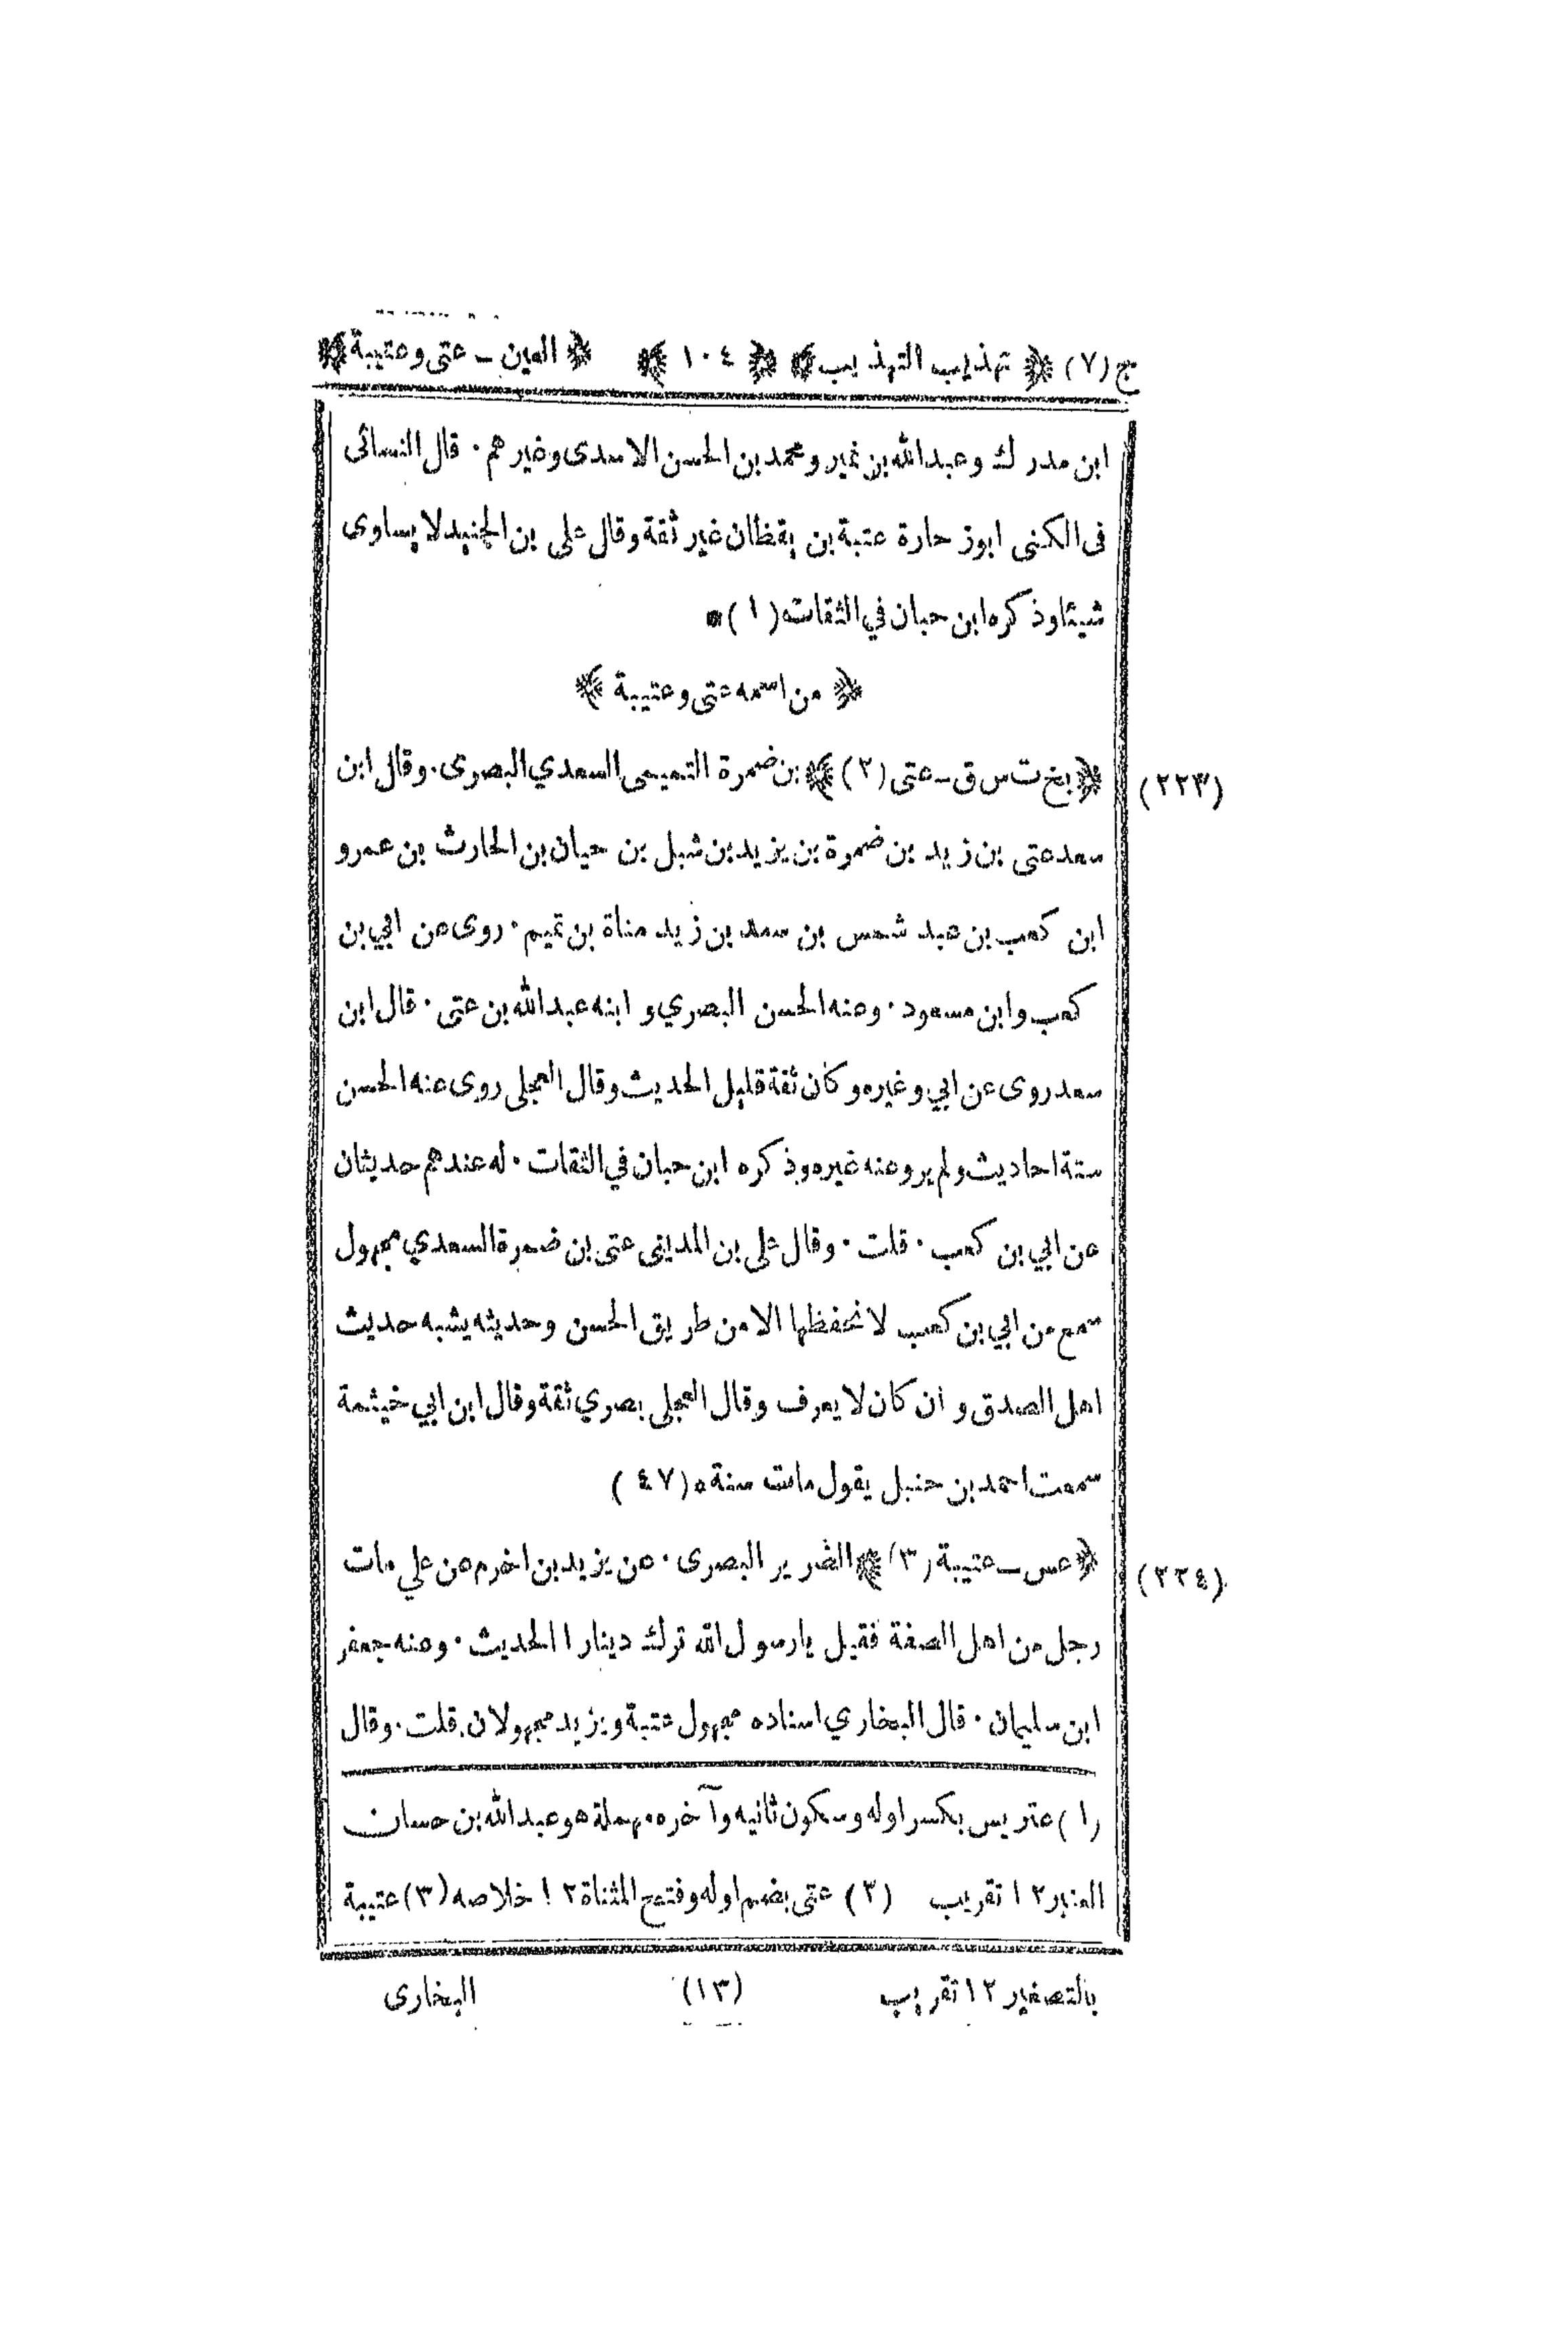 ج (٧) ﴿ تهذيب التهذيب ﴾ ﴿ ١٠٤ ﴾ ﴿ العين ــ عتى وعتيبة ﴾
ابن مدرك وعبدالله بن نمير ومحمد بن الحسن الاسدى وغيرهم ٠ قال النسائى
فى الكنى ابوز حارة عتبة بن يقظان غير ثقة وقال على بن الجنيد لا يساوى
شيئا وذكره ابن حبان في الثقات (١) *
﴿ من اسمه عتى وعتيبة ﴾
(٢٢٣) ﴿ بخ ت س ق ــ عتى (٢) ﴾ بن ضمرة التميمى السعدي البصرى ٠ وقال ابن
سعد عتى بن زيد بن ضمرة بن يزيد بن شبل بن حيان بن الحارث بن عمرو
ابن كعب بن عبد شمس بن سعد بن زيد مناة بن تميم ٠ روى عن ابي بن
كعب وابن مسعود ٠ وعنه الحسن البصري و ابنه عبدالله بن عتى ٠ قال ابن
سعد روى عن ابي وغيره وكان ثقة قليل الحديث وقال العجلى روى عنه الحسن
ستة احاديث ولم يرو عنه غيره وذكره ابن حبان في الثقات ٠ له عندهم حديثان
عن ابي بن كعب ٠ قلت ٠ وقال على بن المدينى عتى بن ضمرة السعدي مجهول
سمع من ابي بن كعب لا نحفظها الا من طريق الحسن وحديثه يشبه حديث
اهل الصدق و ان كان لا يعرف وقال العجلى بصري ثقة وقال ابن ابي خيثمة
سمعت احمد بن حنبل يقول مات سنة (٤٧)
(٢٢٤) ﴿ عس ــ عتيبة (٣) ﴾ الضرير البصرى ٠ عن يزيد بن اخرم عن علي مات
رجل من اهل الصفة فقيل يا رسول الله ترك دينارا الحديث ٠ وعنه جعفر
ابن سليمان ٠ قال البخاري اسناده مجهول عتبة ويزيد مجهولان ٠ قلت ٠ وقال
(١) عتريس بكسر اوله وسكون ثانيه وآخره مهملة هو عبدالله بن حسان
العنبر ١٢ تقريب (٢) عتى بضم اوله وفتح المثناة ١٢ خلاصه (٣) عتيبة
بالتصغير ١٢ تقريب (١٣) البخارى